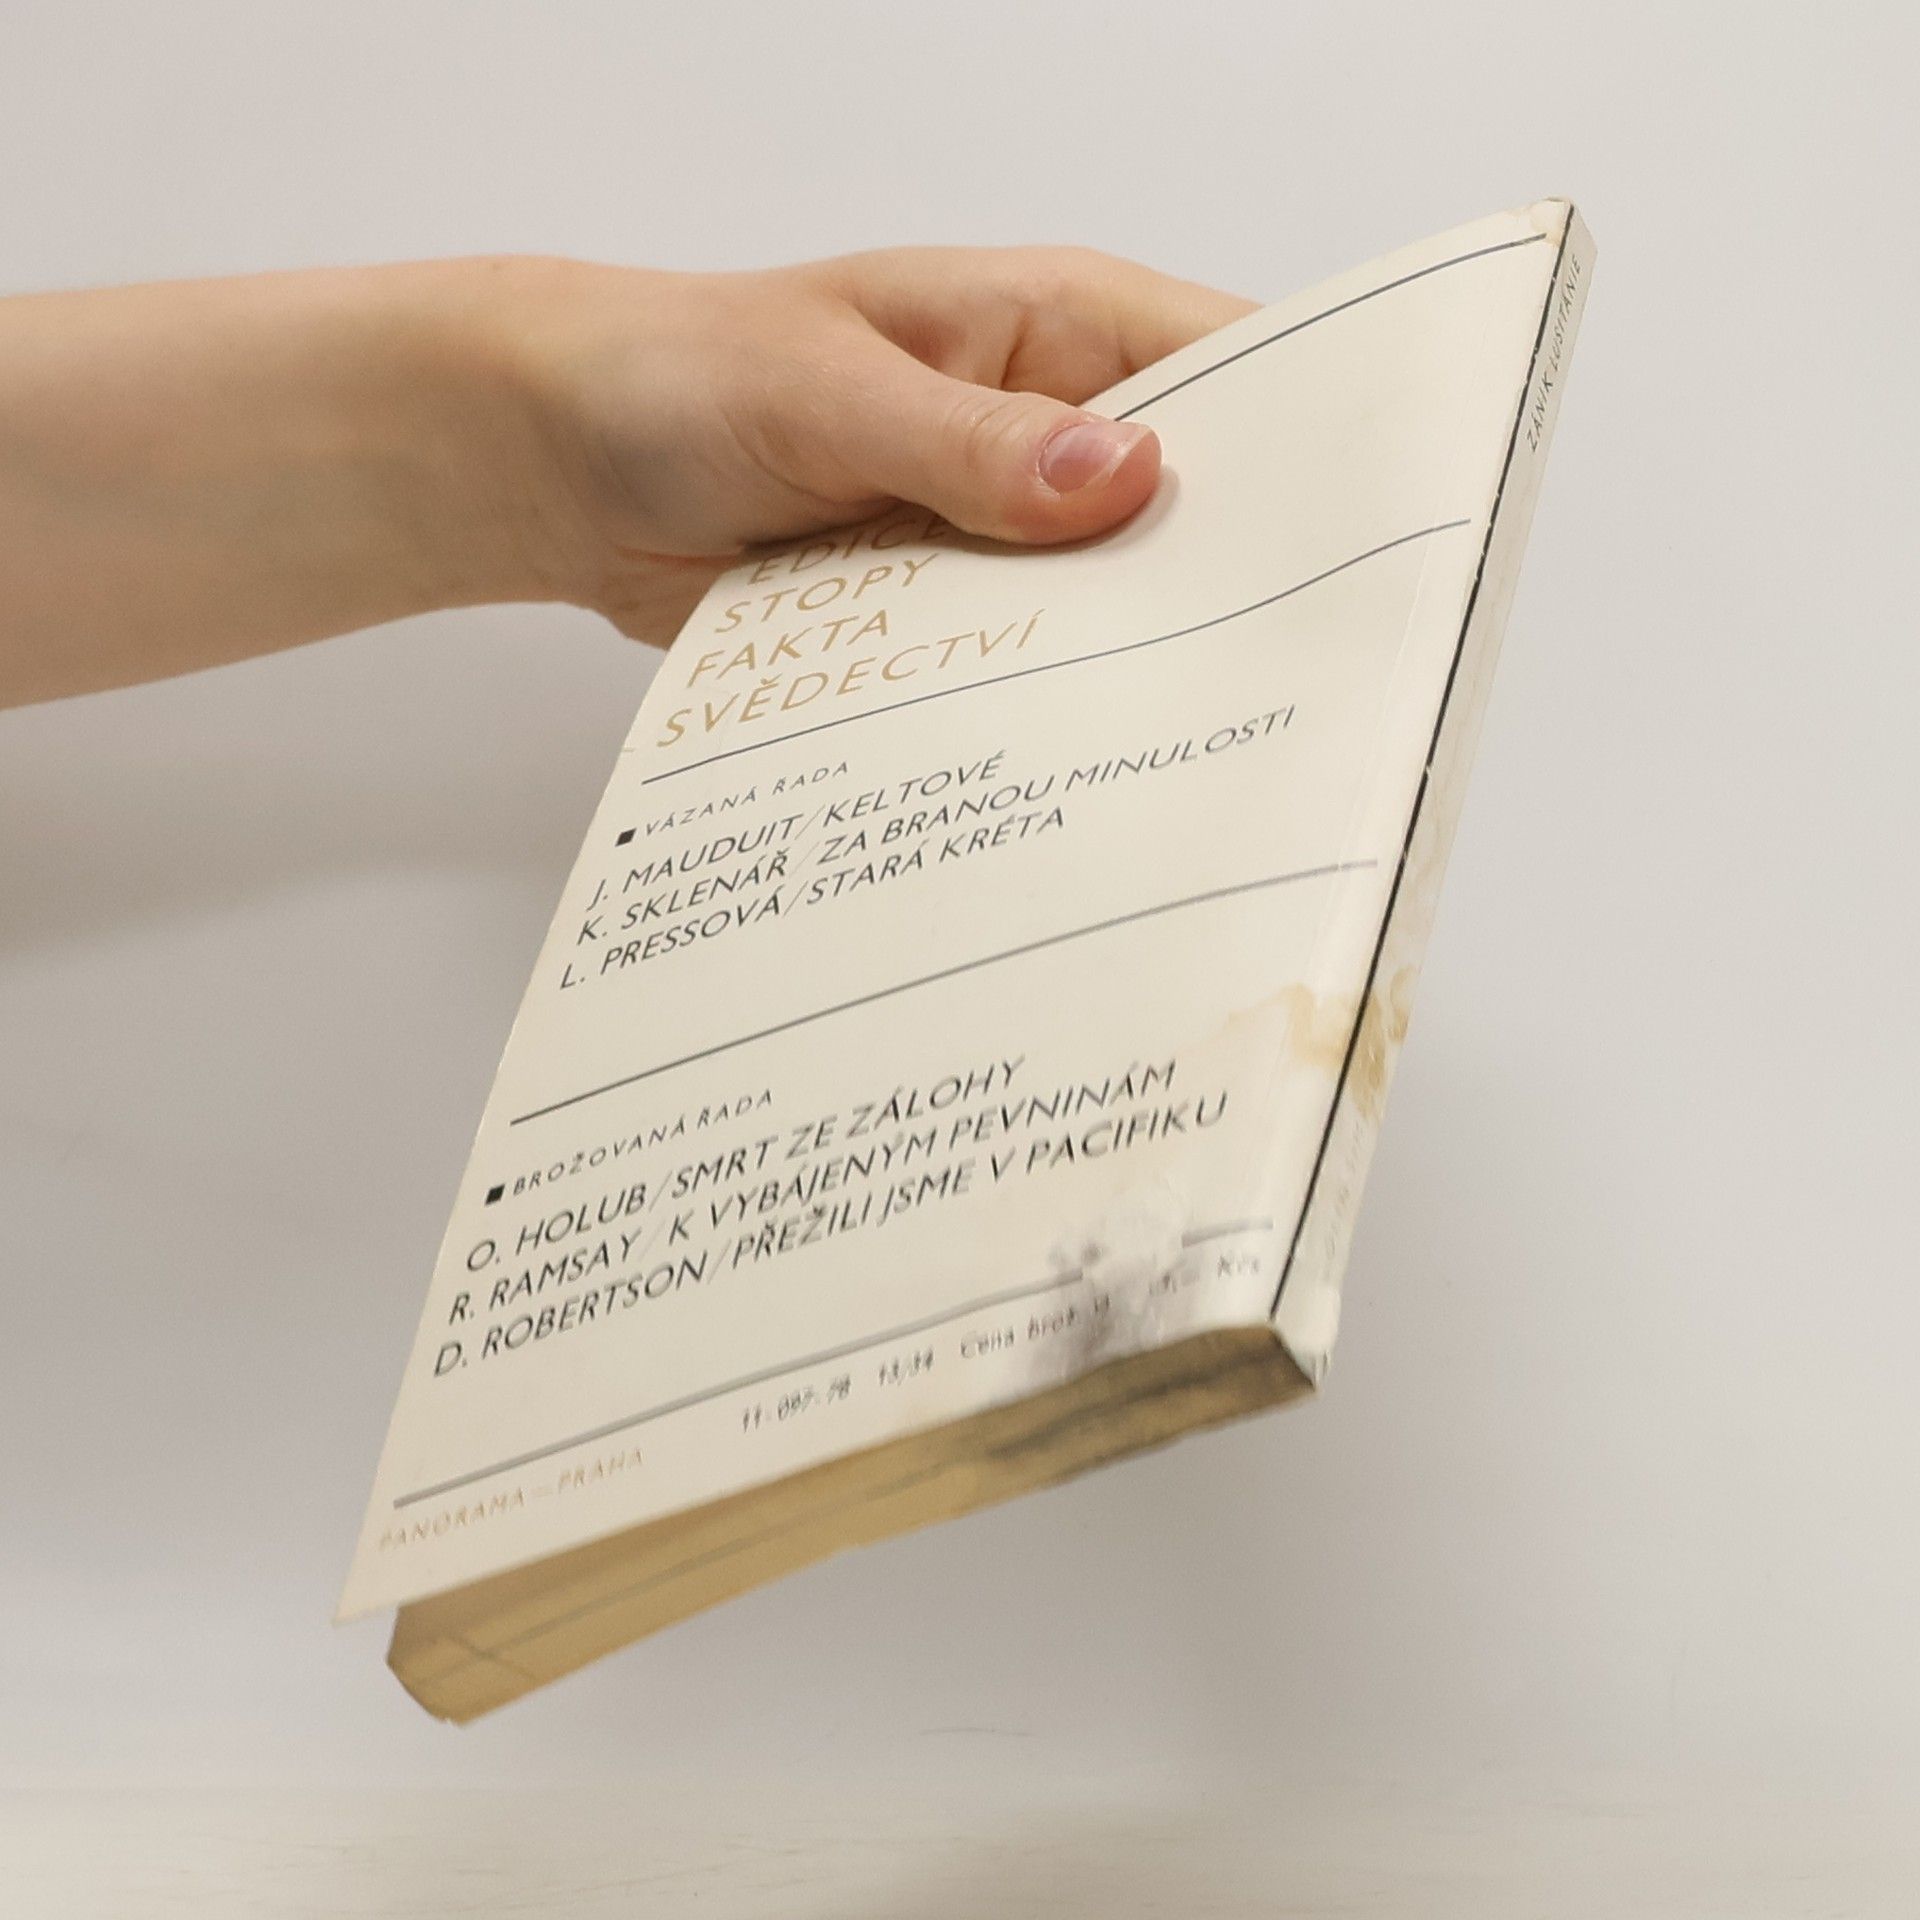 EDICE
STOPY
FAKTA
SVĚDECTVÍ
■ VÁZANÁ ŘADA
J. MAUDUIT/KELTOVÉ
K. SKLENÁŘ/ZA BRANOU MINULOSTI
L. PRESSOVÁ/STARÁ KRÉTA
■ BROŽOVANÁ ŘADA
O. HOLUB/SMRT ZE ZÁLOHY
R. RAMSAY/K VYBÁJENÝM PEVNINÁM
D. ROBERTSON/PŘEŽILI JSME V PACIFIKU
11-097-78 13/34 Cena brož. Kčs
PANORAMA—PRAHA
ZÁNIK LUSITANIE